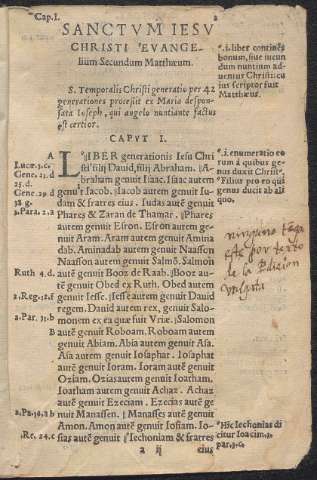 Cap.I.
2
SANCTVM IESV
CHRISTI EVANGE-
lium Secundum Matthæum.
S. Temporalis Christi generatio per 42
generationes processit ex Maria despon-
sata Ioseph, qui angelo nuntiante factus
est certior.
CAPVT I.
LIBER generationis Iesu Chri
sti filij Dauid, filij Abraham.
Abraham genuit Isaac. Isaac autem
genuit Iacob. Iacob autem genuit Iu-
dam & fratres eius. Iudas autē genuit
Phares & Zaran de Thamar. Phares
autem genuit Esron. Esron autem ge-
nuit Aram. Aram autem genuit Amina
dab. Aminadab autem genuit Naasson
Naasson autem genuit Salmō. Salmon
autē genuit Booz de Raab. Booz au-
tē genuit Obed ex Ruth. Obed autem
genuit Iesse. Iesse autem genuit Dauid
regem. Dauid autem rex, genuit Salo-
monem ex ea quę fuit Vriæ. Salomon
autē genuit Roboam. Roboam autem
genuit Abiam. Abia autem genuit Asa.
Asa autem genuit Iosaphat. Iosaphat
autē genuit Ioram. Ioram autē genuit
Oziam. Ozias autem genuit Ioatham.
Ioatham autem genuit Achaz. Achaz
autē genuit Ezeciam. Ezecias autē ge
nuit Manassen. Manasses autē genuit
Amon. Amon autē genuit Iosiam. Io-
sias autē genuit Iechoniam & fratres
a ij eius
A
Lucæ.3.c.
Gene. 21.d
25.d.
Gene. 29.d
38.g.
1.Para.2.a
Ruth 4.d.
2.Reg.12.f
1.Par.3.b
B
2.Pa.36.a b
4.Re. 24.c
a
*.i. liber continēs
bonum, siue iucun
dum nuntium ad-
uentus Christi: cu
ius scriptor fuit
Matthæus.
*.i. enumeratio eo
rum à quibus ge-
nus duxit Christ9.
*Filius pro eo qui
genus ducit ab ali
quo.
ninguno tenga
este por texto
de la Edicion
vulgata
*Hic Iechonias di
citur Ioacim. 1.
par. 3. c.